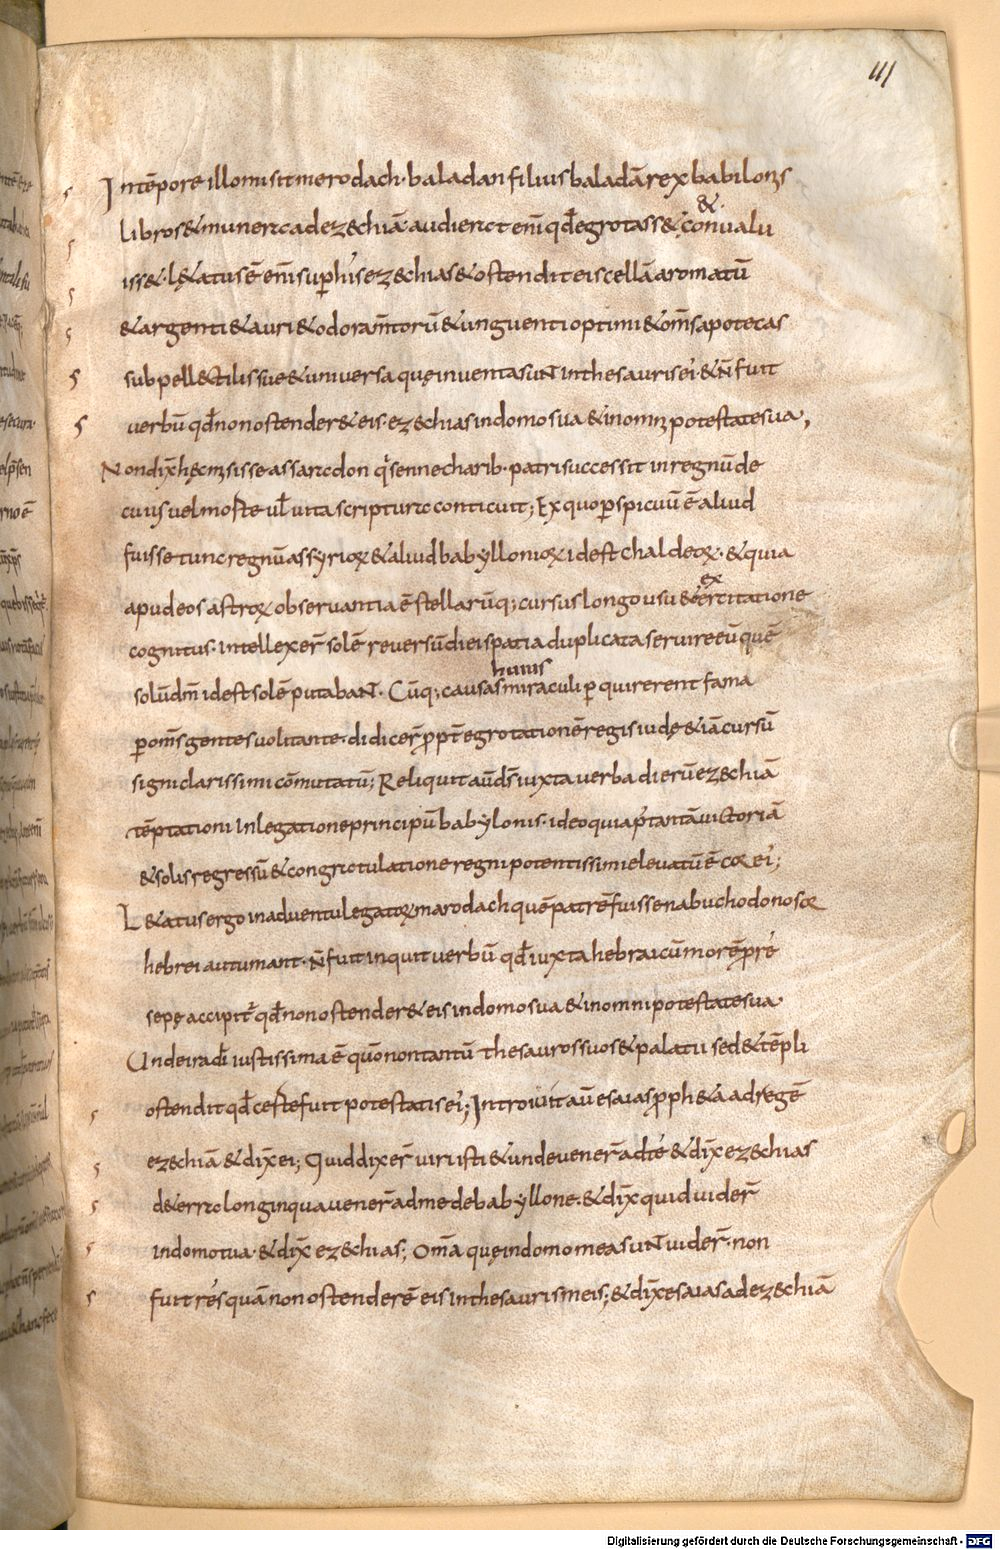 111
In tēpore illo misit merodach· baladan filius baladā rex babilonis
&·
libros & munera ad ezechiā· audierat eni qđ egrotass& conualu
iss&· l&atus ē eni sup his ezechias & ostendit eis cellā aromatū
& argenti & auri & odoramtorū & unguenti optimi & oms apotecas
subpellectilis sue & uniuersa que inuenta sunt in thesauris ei & n fuit
uerbū qđ non ostender& eis· ezechias in domo sua & in omni potestate sua,
Nondix hec misisse assaradon qi sennecharib· patri successit in regnū de
cuius uel morte ul uita scriptura conticuit; Ex quo pspicuū ē aliud
fuisse tunc regnū assyrior & aliud babyllonior id est chaldeor· & quia
ex
apud eos astror obseruantia ē stellarūq; cursus longo usu & ercitatione
cognitus· intellexer solē reuersū diei spatia duplicata seruire eū quē
huius
solū dm id est solē putabant· Cūq; causas miraculi pquirerent fama
p oms gentes uolitante· didicer ppt egrotationē regis iude & iā cursū
signi clarissimi cōmutatū; Reliquit aū ds iuxta uerba dierū ezechiā
tēptationi in legatione principū babylonis· ideo quia p tantā uictoriā
& solis regressū & congratulatione regni potentissimi eleuatū ē cor ei;
L&atus ergo in aduentu legator marodach quē patrē fuisse nabuchodonosor
hebrei autumant· n fuit inquit uerbū qđ iuxta hebraicū morē p re
sepe accipit qđ non ostender& eis in domo sua & in omni potestate sua·
Unde ira di iustissima ē quo non tantū thesauros suos & palatii sed & tēpli
ostendit qđ certe fuit potestatis ei; Introiuit aū esaias pph&a ad regē
ezechiā & dix ei; Quid dixer uiri isti & unde uener ad te & dix ezechias
de terra longinqua uener ad me de babyllone· & dix quid uider
in domo tua· & dix ezechias; Oma que in domo mea sunt uider· non
fuit res quā non ostenderē eis in thesauris meis; & dix esaias ad ezechiā
Digitalisierung gefördert durch die Deutsche Forschungsgemeinschaft - DFG